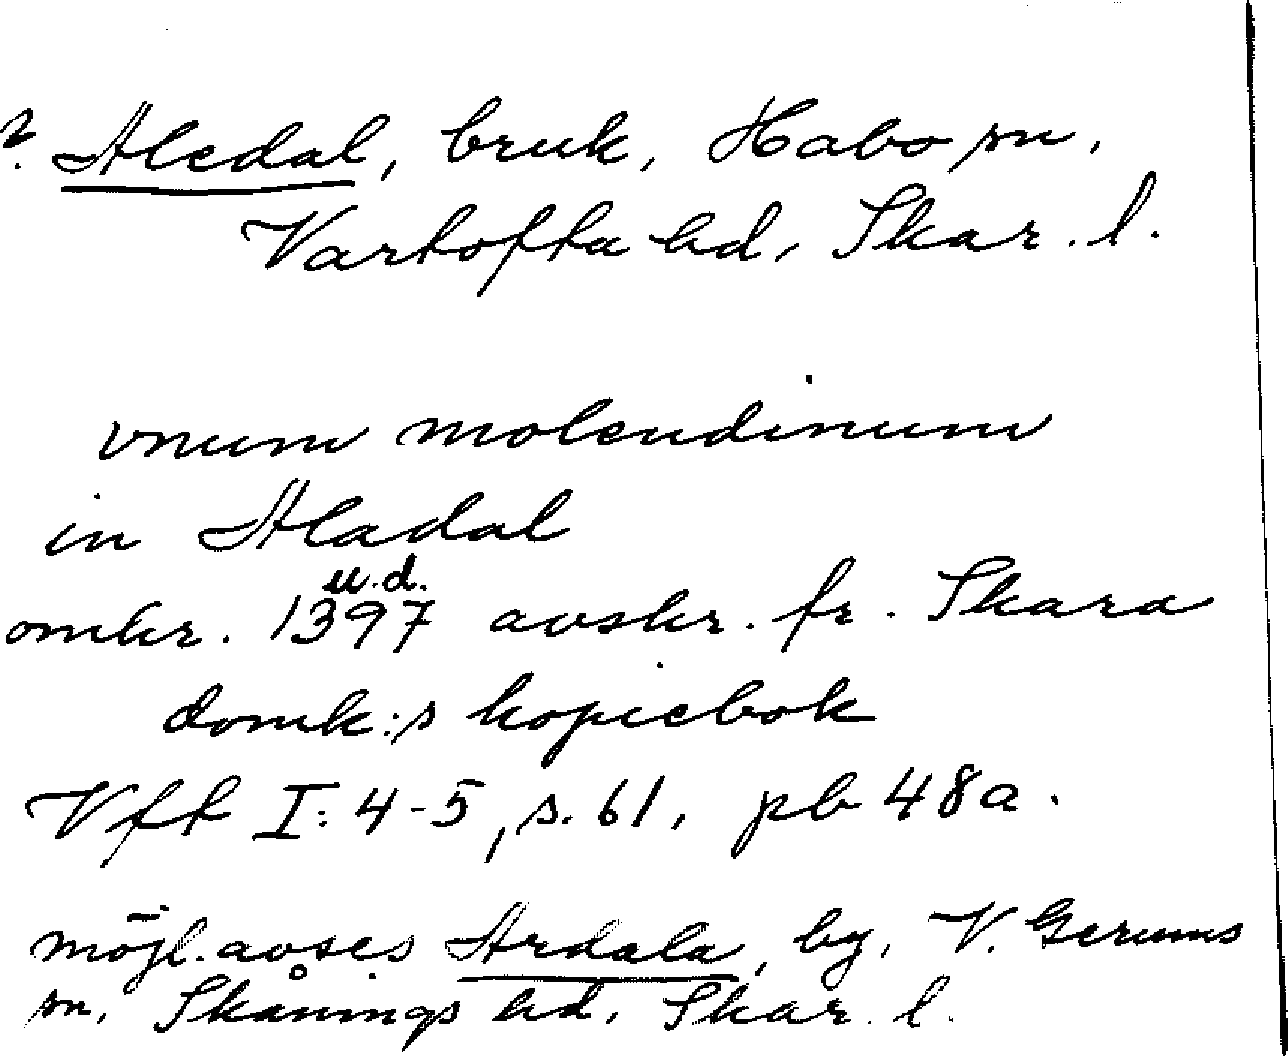 ?. Aledal, bruk, Habo sn,
Vartofta hd, Skar. l.
vnum molendinum
in Aladal
u.d.
omkr. 1397 avskr. fr. Skara
domk:s kopiebok
Vft I: 4-5, s. 61, pb 48a.
möjl. avses Ardala, by, V. Gerums
sn, Skånings hd, Skar. l.